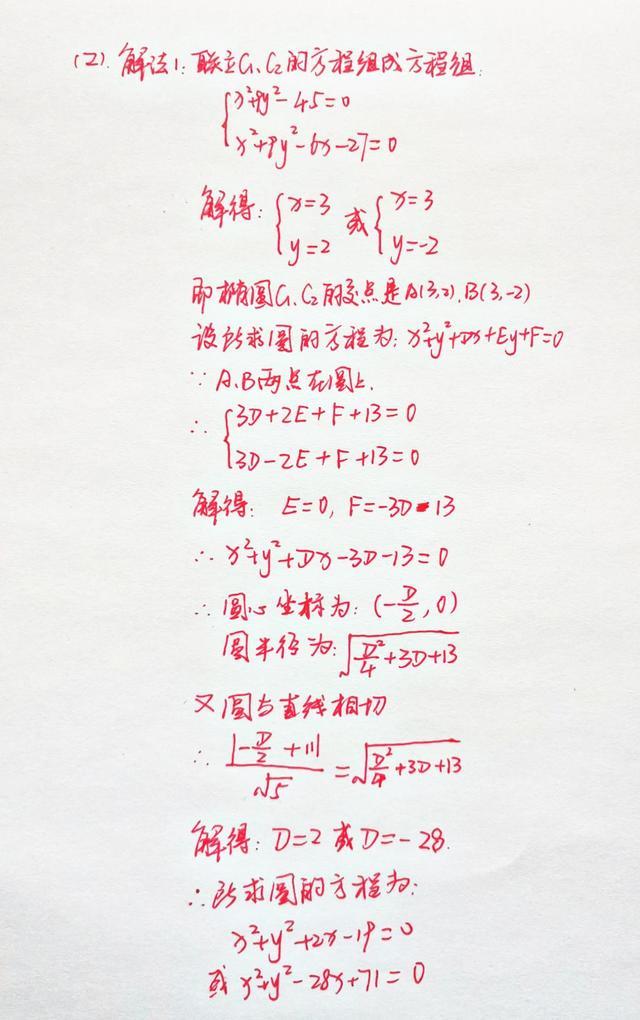 (2). 解法1: 联立C₁、C₂的方程组成方程组:
{x²+9y²-45=0
x²+9y²-6x-27=0
解得: {x=3 y=2 或 {x=3 y=-2
即椭圆C₁、C₂的交点是A(3,2), B(3,-2)
设所求圆的方程为: x²+y²+Dx+Ey+F=0
∵ A、B两点在圆上.
∴ {3D+2E+F+13=0
3D-2E+F+13=0
解得: E=0, F=-3D-13
∴ x²+y²+Dx-3D-13=0
∴ 圆心坐标为: (-D/2, 0)
圆半径为: √(D²/4+3D+13)
又圆与直线相切
∴ |-D/2+11|/√5 = √(D²/4+3D+13)
解得: D=2 或 D=-28.
∴ 所求圆的方程为:
x²+y²+2x-19=0
或 x²+y²-28x+71=0